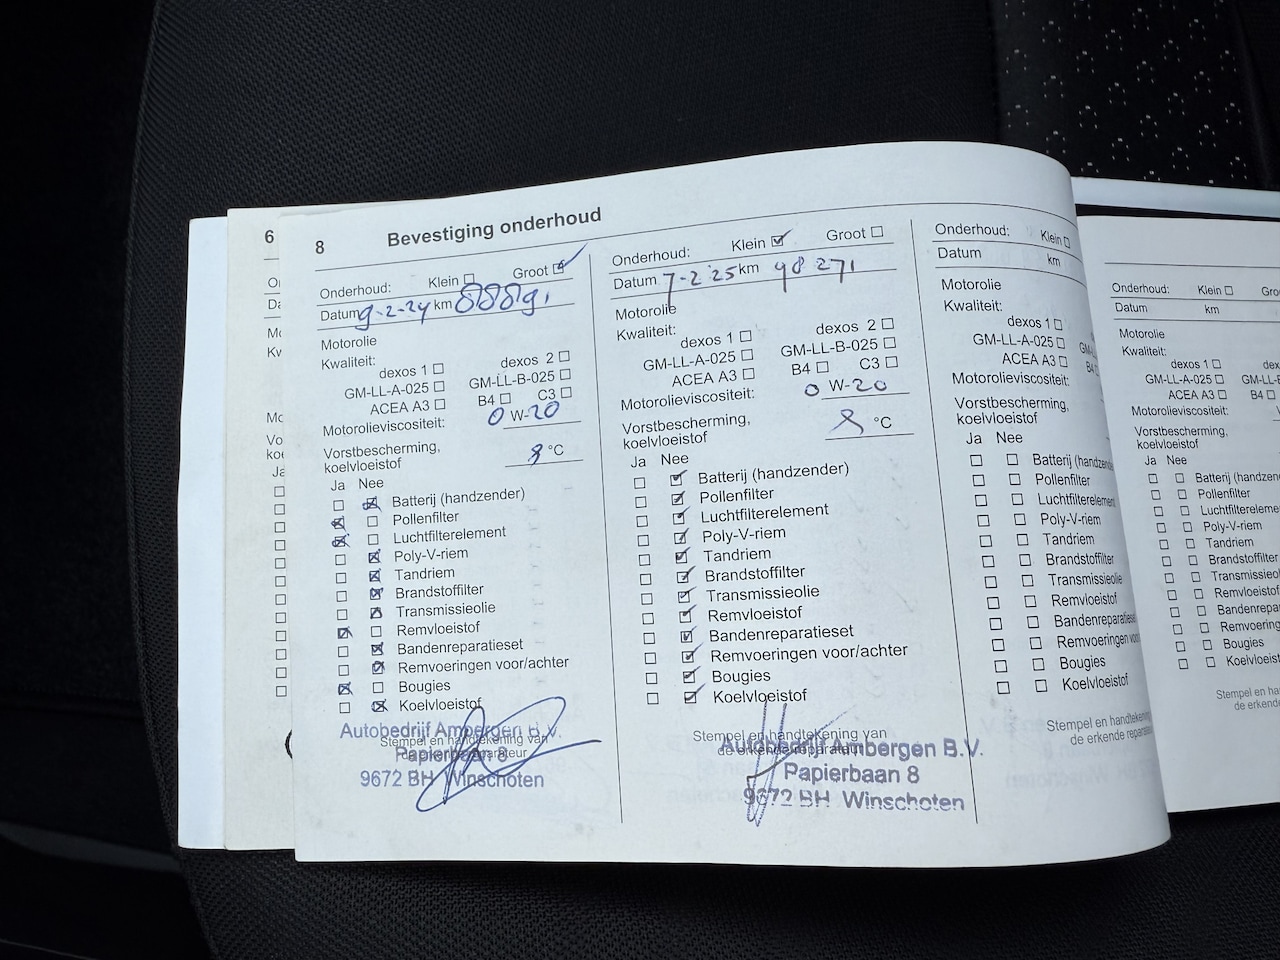 6
8 Bevestiging onderhoud
Onderhoud: Klein ☐ Groot ☑
Datum 9-2-24 km 88891
Motorolie
Kwaliteit:
dexos 1 ☐ dexos 2 ☐
GM-LL-A-025 ☐ GM-LL-B-025 ☐
ACEA A3 ☐ B4 ☐ C3 ☐
Motorolieviscositeit: 0 W-20
Vorstbescherming,
koelvloeistof °C
Ja Nee
☐ ☒ Batterij (handzender)
☒ ☐ Pollenfilter
☒ ☐ Luchtfilterelement
☐ ☒ Poly-V-riem
☐ ☒ Tandriem
☐ ☒ Brandstoffilter
☐ ☒ Transmissieolie
☒ ☐ Remvloeistof
☐ ☒ Bandenreparatieset
☐ ☒ Remvoeringen voor/achter
☒ ☐ Bougies
☐ ☒ Koelvloeistof
Stempel en handtekening van
de erkende reparateur
Autobedrijf Ambergen B.V.
Papierbaan 8
9672 BH Winschoten
Onderhoud: Klein ☑ Groot ☐
Datum 7-2-25 km 98 271
Motorolie
Kwaliteit:
dexos 1 ☐ dexos 2 ☐
GM-LL-A-025 ☐ GM-LL-B-025 ☐
ACEA A3 ☐ B4 ☐ C3 ☐
Motorolieviscositeit: 0 W-20
Vorstbescherming,
koelvloeistof °C
Ja Nee
☐ ☑ Batterij (handzender)
☐ ☑ Pollenfilter
☐ ☑ Luchtfilterelement
☐ ☑ Poly-V-riem
☐ ☑ Tandriem
☐ ☑ Brandstoffilter
☐ ☑ Transmissieolie
☐ ☑ Remvloeistof
☐ ☑ Bandenreparatieset
☐ ☑ Remvoeringen voor/achter
☐ ☑ Bougies
☐ ☑ Koelvloeistof
Stempel en handtekening van
de erkende reparateur
Autobedrijf Ambergen B.V.
Papierbaan 8
9672 BH Winschoten
Onderhoud: Klein ☐
Datum km
Motorolie
Kwaliteit:
dexos 1 ☐
GM-LL-A-025 ☐
ACEA A3 ☐
Motorolieviscositeit:
Vorstbescherming,
koelvloeistof
Ja Nee
☐ ☐ Batterij (handzender
☐ ☐ Pollenfilter
☐ ☐ Luchtfilterelement
☐ ☐ Poly-V-riem
☐ ☐ Tandriem
☐ ☐ Brandstoffilter
☐ ☐ Transmissieolie
☐ ☐ Remvloeistof
☐ ☐ Bandenreparatie
☐ ☐ Remvoeringen voor
☐ ☐ Bougies
☐ ☐ Koelvloeistof
Stempel en handtekening
de erkende repara
Onderhoud: Klein ☐ Gro
Datum km
Motorolie
Kwaliteit:
dexos 1 ☐
GM-LL-A-025 ☐ GM-L
ACEA A3 ☐ B4 ☐
Motorolieviscositeit:
Vorstbescherming,
koelvloeistof
Ja Nee
☐ ☐ Batterij (handze
☐ ☐ Pollenfilter
☐ ☐ Luchtfiltereleme
☐ ☐ Poly-V-riem
☐ ☐ Tandriem
☐ ☐ Brandstoffilter
☐ ☐ Transmissieol
☐ ☐ Remvloeistof
☐ ☐ Bandenrepara
☐ ☐ Remvoering
☐ ☐ Bougies
☐ ☐ Koelvloeist
Stempel en ha
de erken